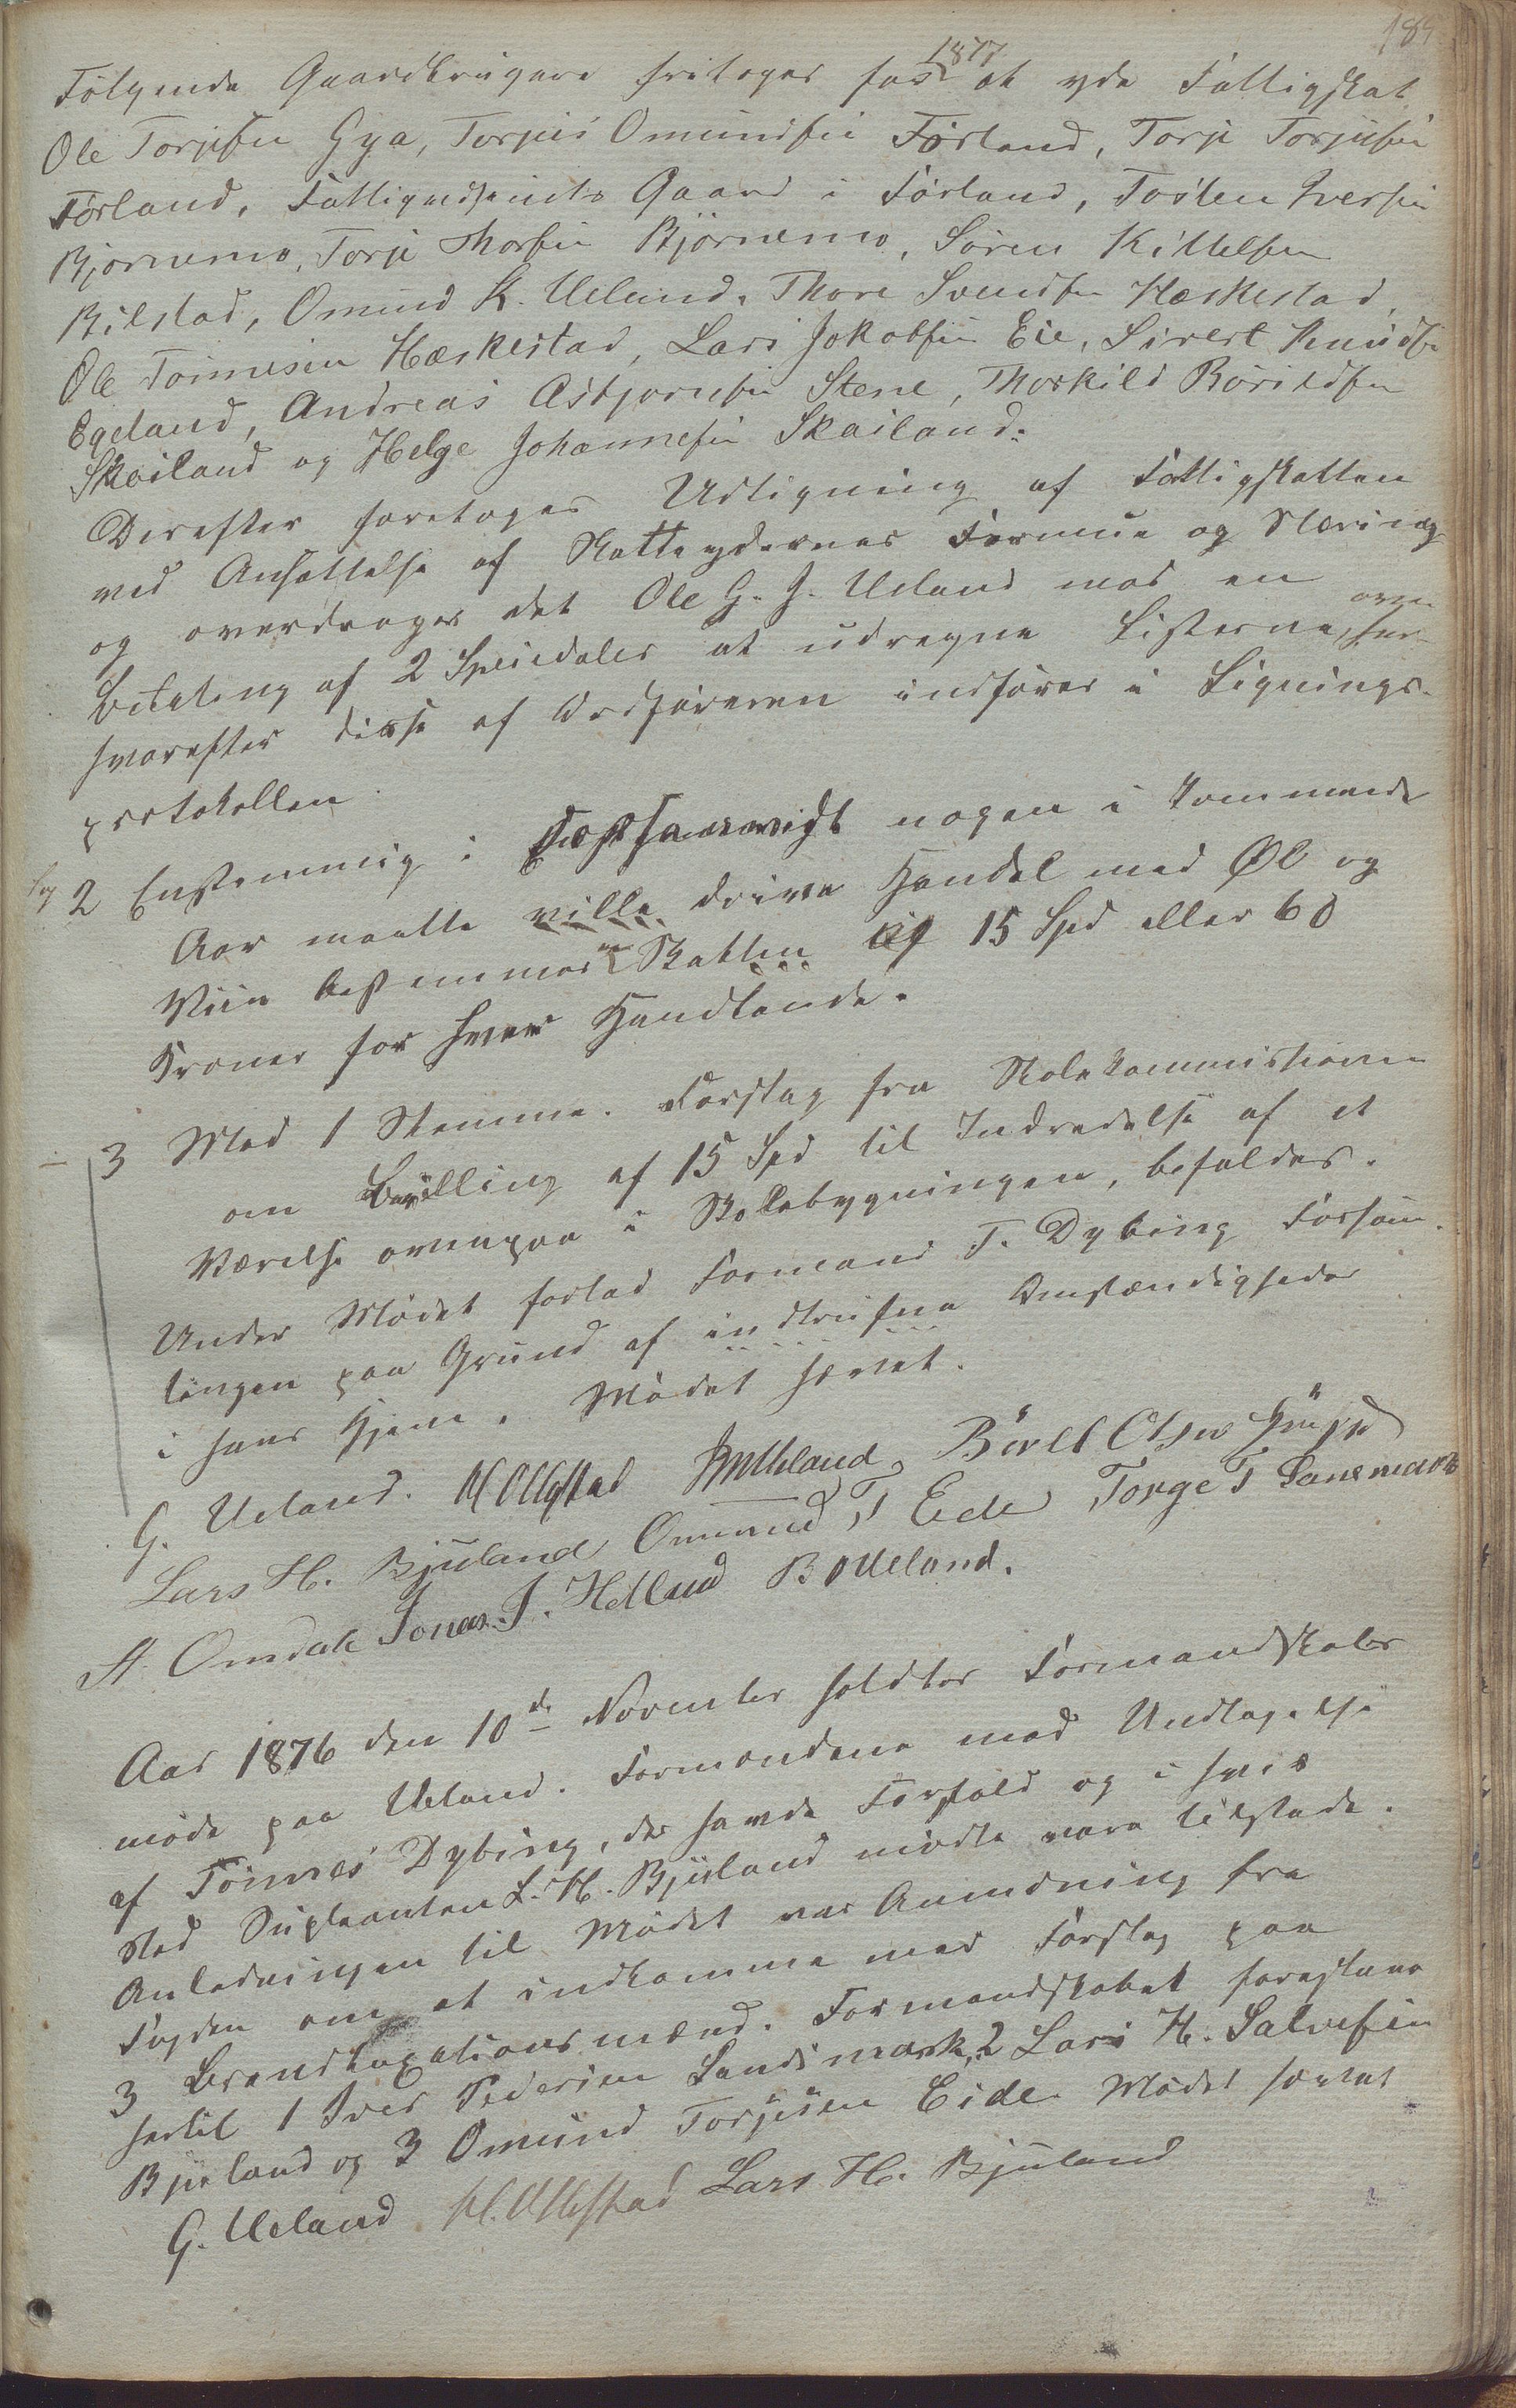 189
Følgende Gaardbrugere fritages for 1877 at yde Fattigskat
Ole Torjesen Gya, Torjus Omundsen Førland, Torje Torjusen
Førland, Fattigvæsenets Gaard i Førland, Tosten Iversen
Bjørnemo, Torje Thorsen Bjørnemo, Søren Kittelsen
Bilstad, Omund K. Ueland, Thore Svendsen Hæskestad,
Ole Tønnesen Hæskestad, Lars Jokobsen Eie, Sivert Knudsen
Egeland, Andreas Asbjørnsen Stene, Thorkild Børildsen
Skailand og Helge Johannesen Skailand.
Derefter foretoges Udligning af Fattigskatten
ved Ansættelse af Skatteydernes Formue og Næring
og overdroges det Ole G. J. Ueland mod en
Betaling af 2 Speciedaler at udregne Listerne, over
hvorefter disse af Ordføreren indføres i Lignings-
protokollen.
2 Enstemmig: Forsaavidt nogen i kommende
Aar maatte ville drive Handel med Øl og
Viin bestemmes Skatten til 15 Spd eller 60
Kroner for hver Handlende.
3 Mod 1 Stemme. Forslag fra Skolekommissionen
om Bevilling af 15 Spd til Indredelse af et
Værelse ovenpaa i Skolebygningen, bifaldes.
Under Mødet forlod Formand T. Dybing Forsam-
lingen paa Grund af indtrufne Omstændigheder
i hans Hjem. Mødet hævet.
G. Ueland. M Ollestad Ueland, Børel Olsen
Lars H. Bjuland Ommund T Eide Torge T Lanemark
St. Omdal Jonas J. Hetland B O Ueland.
Aar 1876 den 10de November holdtes Formandskabs
møde paa Ueland. Formændene med Undtagelse
af Tønnes Dybing, der havde Forfald og i hvis
Sted Supleanten L. H. Bjuland mødte vare tilstede.
Anledningen til Mødet var Anmodning fra
Fogden om at indkomme med Forslag paa
3 Brandtaxationsmænd. Formandskabet foreslaar
hertil 1 Iver Pedersen Landsmark, 2 Lars H. Salvesen
Bjuland og 3 Omund Torjesen Eide. Mødet hævet
G. Ueland M. Ollestad Lars H. Bjuland